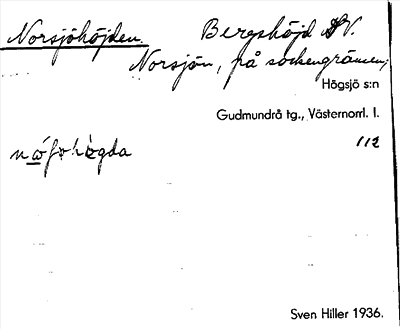 Norsjöhöjden.
Bergshöjd V.
Norsjön, på sockengränsen,
Högsjö s:n
Gudmundrå tg., Västernorrl. l.
112
Sven Hiller 1936.